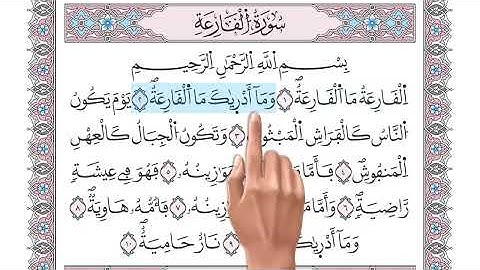 سُورَةُ ٱلْقَارِعَةِ
بِسْمِ ٱللَّهِ ٱلرَّحْمَٰنِ ٱلرَّحِيمِ
ٱلْقَارِعَةُ مَا ٱلْقَارِعَةُ ١ وَمَآ أَدْرَىٰكَ مَا ٱلْقَارِعَةُ ٢ يَوْمَ يَكُونُ
ٱلنَّاسُ كَالْفَرَاشِ ٱلْمَبْثُوثِ ٣ وَتَكُونُ ٱلْجِبَالُ كَالْعِهْنِ
ٱلْمَنفُوشِ ٤ فَأَمَّا وَٰزِينُهُۥ ٥ فَهُوَ فِى عِيشَةٍ
رَّاضِيَةٍ ٦ وَأَمَّا زِينُهُۥ ٧ فَأُمُّهُۥ هَاوِيَةٌ ٨
وَمَآ أَدْرَىٰكَ ٩ نَارٌ حَامِيَةٌ ١٠